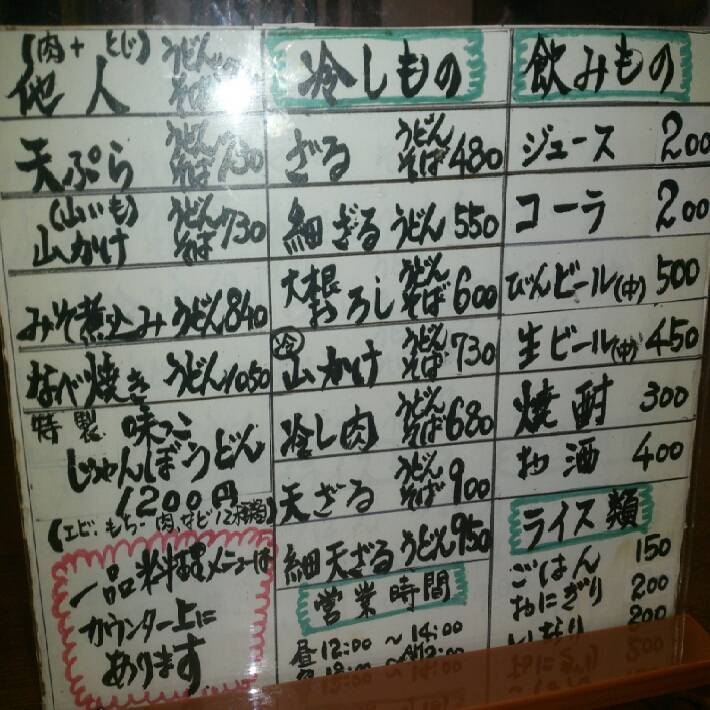 (肉+とじ)
他人 うどん そば
天ぷら うどん そば 730
(山いも)
山かけ うどん そば 730
みそ煮込みうどん 840
なべ焼き うどん 1050
特製 味っこ
じゃんぼうどん
1200円
(エビ、もち、肉など12種類)
一品料理メニューは
カウンター上に
あります
冷しもの
ざる うどん そば 480
細ざるうどん 550
大根おろし うどん そば 600
冷 山かけ うどん そば 730
冷し肉 うどん そば 680
天ざる うどん そば 900
細天ざるうどん 950
営業時間
昼 12:00 〜 14:00
飲みもの
ジュース 200
コーラ 200
びんビール(中) 500
生ビール(中) 450
焼酎 300
お酒 400
ライス類
ごはん 150
おにぎり 200
いなり 200